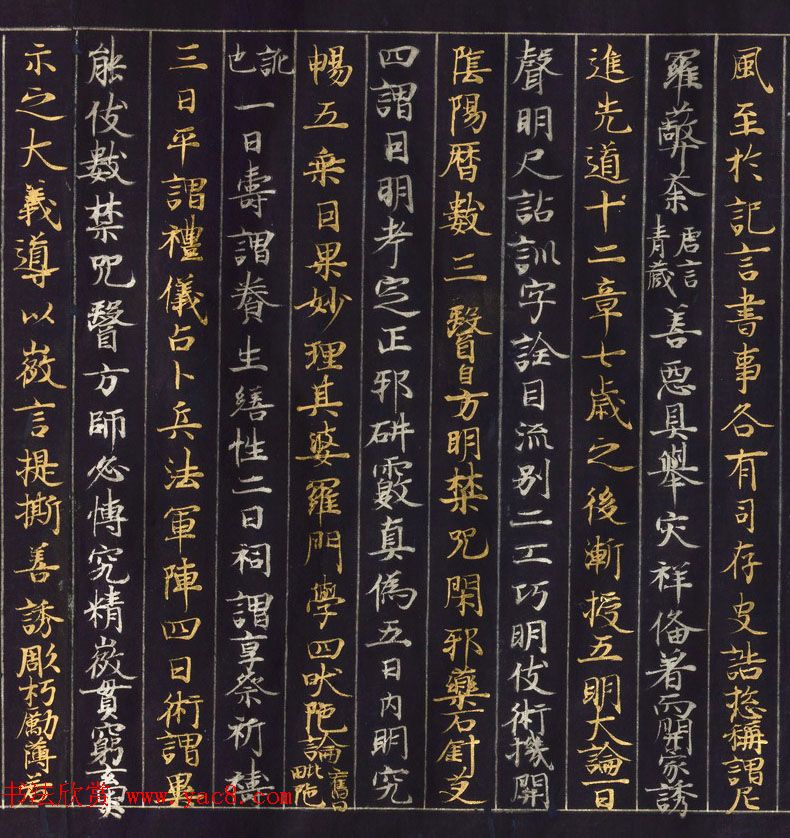 風至於記言書事各有司存史誥捴稱謂尼
羅蔽荼唐言青藏善惡具舉灾祥俻著而開家誘
進先道十二章七歲之後漸授五明大論一曰
聲明尺詁訓字詮目流別二工巧明伎術機關
陰陽暦數三醫自方明禁咒閑邪藥石針艾
四謂因明考定正邪研覈真偽五曰內明究
暢五乗因果妙理其婆羅門學四吠陁論舊曰毗陁
訛也一曰壽謂養生繕性二曰祠謂享祭祈禱
三曰平謂禮儀占卜兵法軍陣四曰術謂異
能伎數禁咒醫方師必博究精微貫窮玄奧
示之大義導以微言提撕善誘彫朽勵薄若
书法欣赏 www.yac8.com